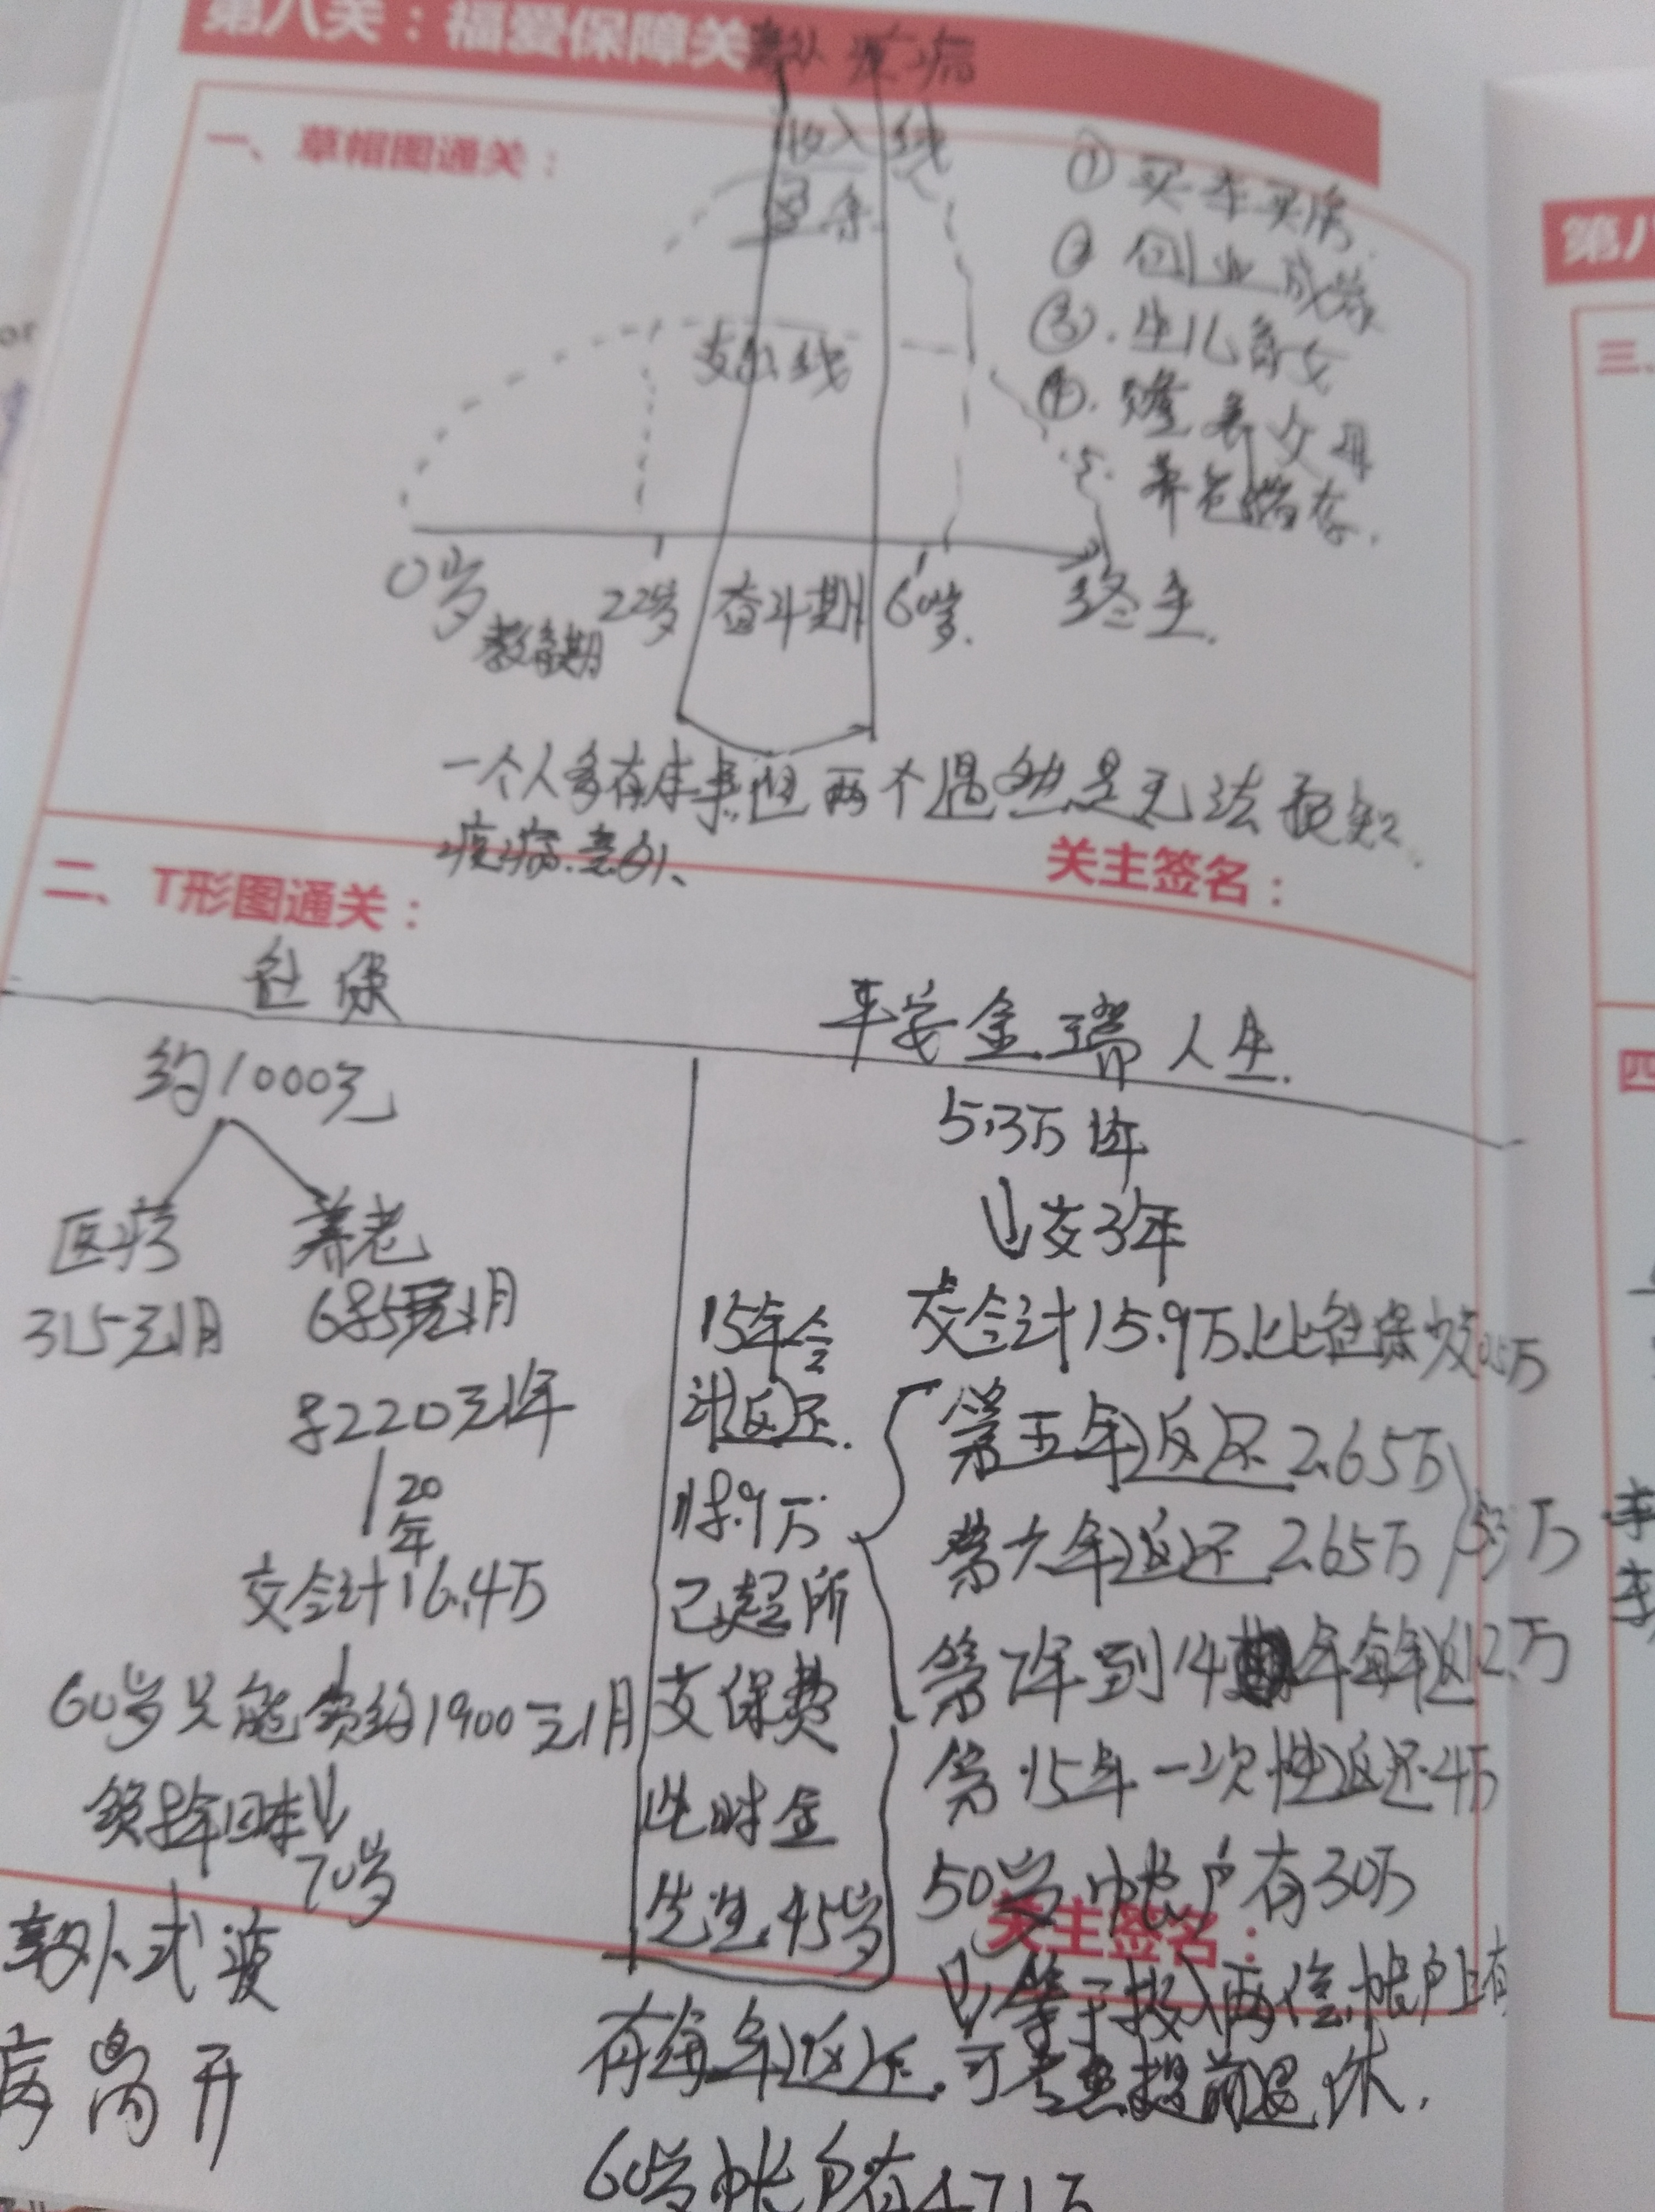 第八关：福爱保障关
意外 疾病
一、草帽图通关：
收入线
盈余
支出线
① 买车买房
② 创业成家
③. 生儿育女
④. 赡养父母
5. 养老储存.
0岁
22岁
奋斗期
60岁.
终生.
教育期
一个人多有未来但两个偶然是无法预知
疾病.意外、
关主签名：
二、T形图通关：
社保
平安金瑞人生.
约1000元
5.3万1年
医疗
养老
交3年
315元1月
685元1月
交合计15.9万.比社保少交0.5万
8220元1年
第五年返还2.65万
5.3万
20年
第六年返还2.65万
交合计16.4万
第7年到14年每年返1.2万
60岁只能领约1900元1月
第15年一次性返还4万
领8年回本
70岁
15年合
计返还.
18.9万
已超所
交保费
此时金
先生45岁
50岁帐户有30万
关主签名：
等于投入两倍.帐户上有
有每年返还.可考虑提前退休.
60岁帐户有47.1万
意外式疾
病离开
第八
三、
四